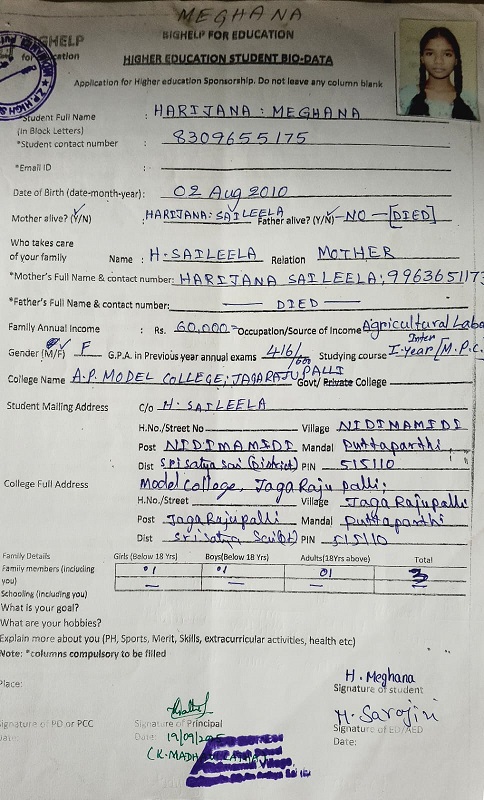 MEGHANA
BIGHELP BIGHELP FOR EDUCATION
for Education HIGHER EDUCATION STUDENT BIO-DATA
Application for Higher education Sponsorship. Do not leave any column blank
Student Full Name : HARIJANA : MEGHANA
(In Block Letters)
*Student contact number : 8309655175
*Email ID :
Date of Birth (date-month-year): 02 Aug 2010
Mother alive? (Y/N) HARIJANA: SAILEELA Father alive? (Y/N) - NO - [DIED]
Who takes care
of your family Name : H. SAILEELA Relation MOTHER
*Mother's Full Name & contact number: HARIJANA SAILEELA; 996365117
*Father's Full Name & contact number: DIED
Family Annual Income : Rs. 60,000= Occupation/Source of Income Agricultural Labo
Gender (M/F) F G.P.A in Previous year annual exams 416/600 Studying course Inter I-year [M.P.C]
College Name A.P. MODEL COLLEGE; JAGARAJUPALLI Govt/ Private College
Student Mailing Address C/o H. SAILEELA
H.No./Street No Village NIDIMAMIDI
Post NIDIMAMIDI Mandal Puttaparthi
Dist Sri Satya Sai (District) PIN 515110
College Full Address Model College, JagaRaju palli;
H.No./Street Village JagaRajupalli
Post JagaRajupalli Mandal Puttaparthi
Dist Sri Satya Sai (Dt) PIN 515110
Family Details Girls (Below 18 Yrs) Boys(Below 18 Yrs) Adults(18Yrs above) Total
Family members (including you) 01 01 01 3
Schooling (including you) — —
What is your goal?
What are your hobbies?
Explain more about you (PH, Sports, Merit, Skills, extracurricular activities, health etc)
Note: *columns compulsory to be filled
Place:
H. Meghana
Signature of student
Signature of PD or PCC Signature of Principal H. Sarojini
Signature of ED/AED
Date: Date: 19/09/ Date: